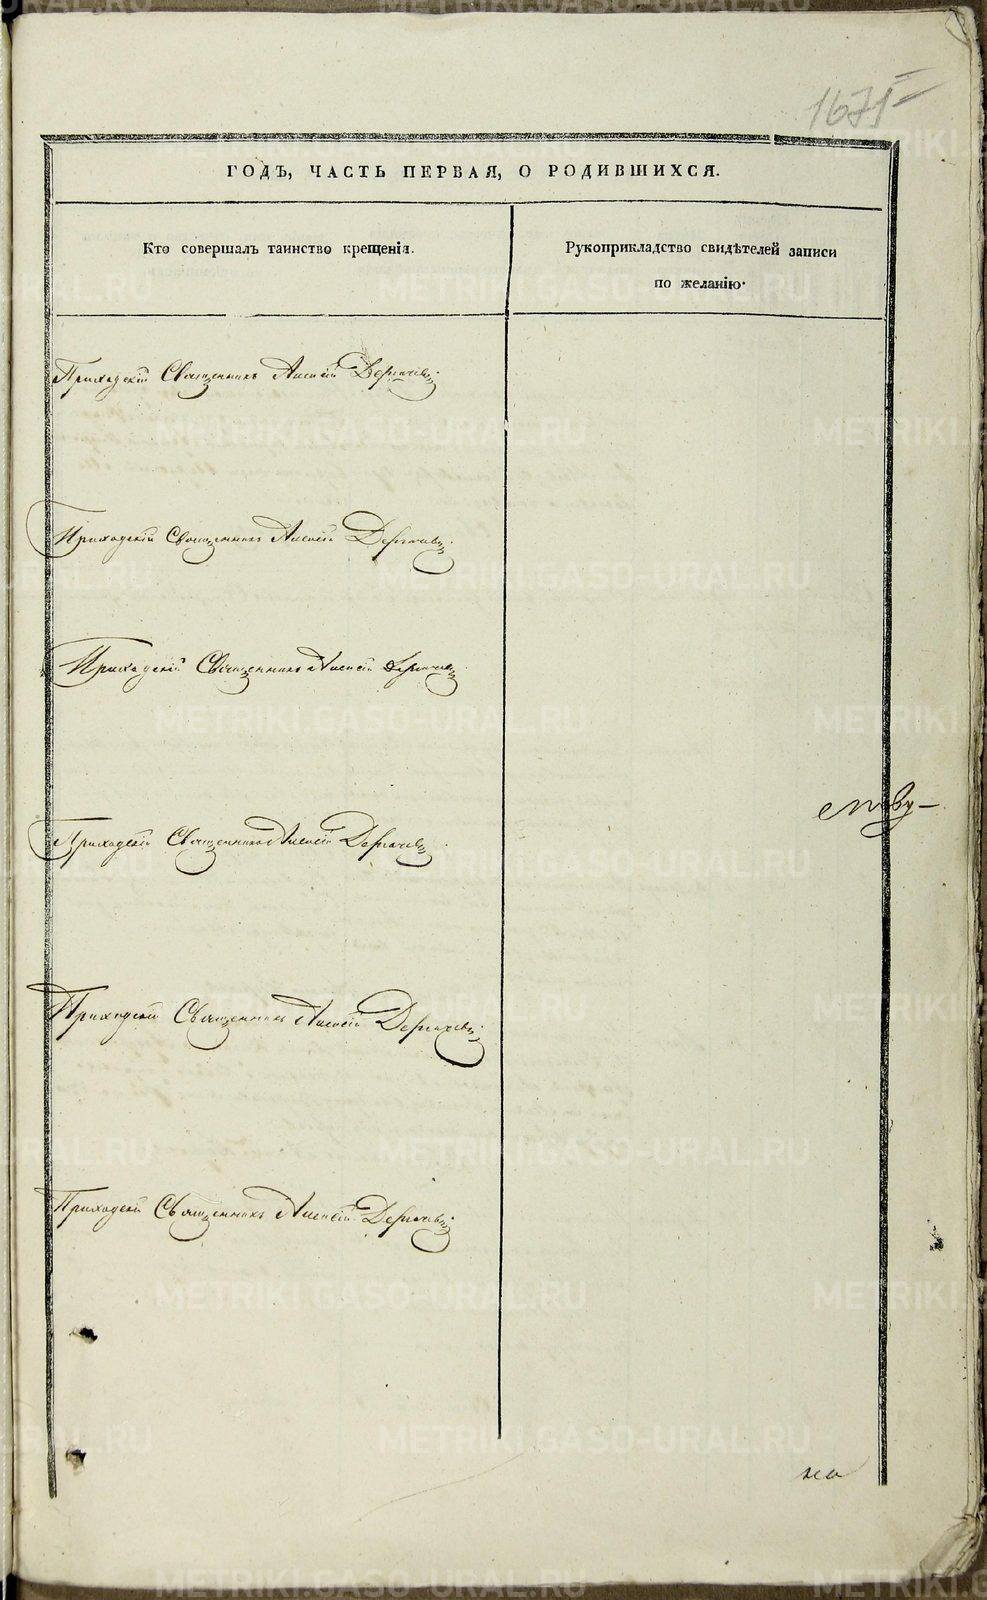 1671
ГОДЪ, ЧАСТЬ ПЕРВАЯ, О РОДИВШИХСЯ.
Кто совершалъ таинство крещенія.
Рукоприкладство свидѣтелей записи
по желанію.
Приходскій Священникъ Алексій Дерпачевъ
Приходскій Священникъ Алексій Дерпачевъ
Приходскій Священникъ Алексій Дерпачевъ
Приходскій Священникъ Алексій Дерпачевъ
Приходскій Священникъ Алексій Дерпачевъ
Приходскій Священникъ Алексій Дерпачевъ
на
METRIKI.GASO-URAL.RU